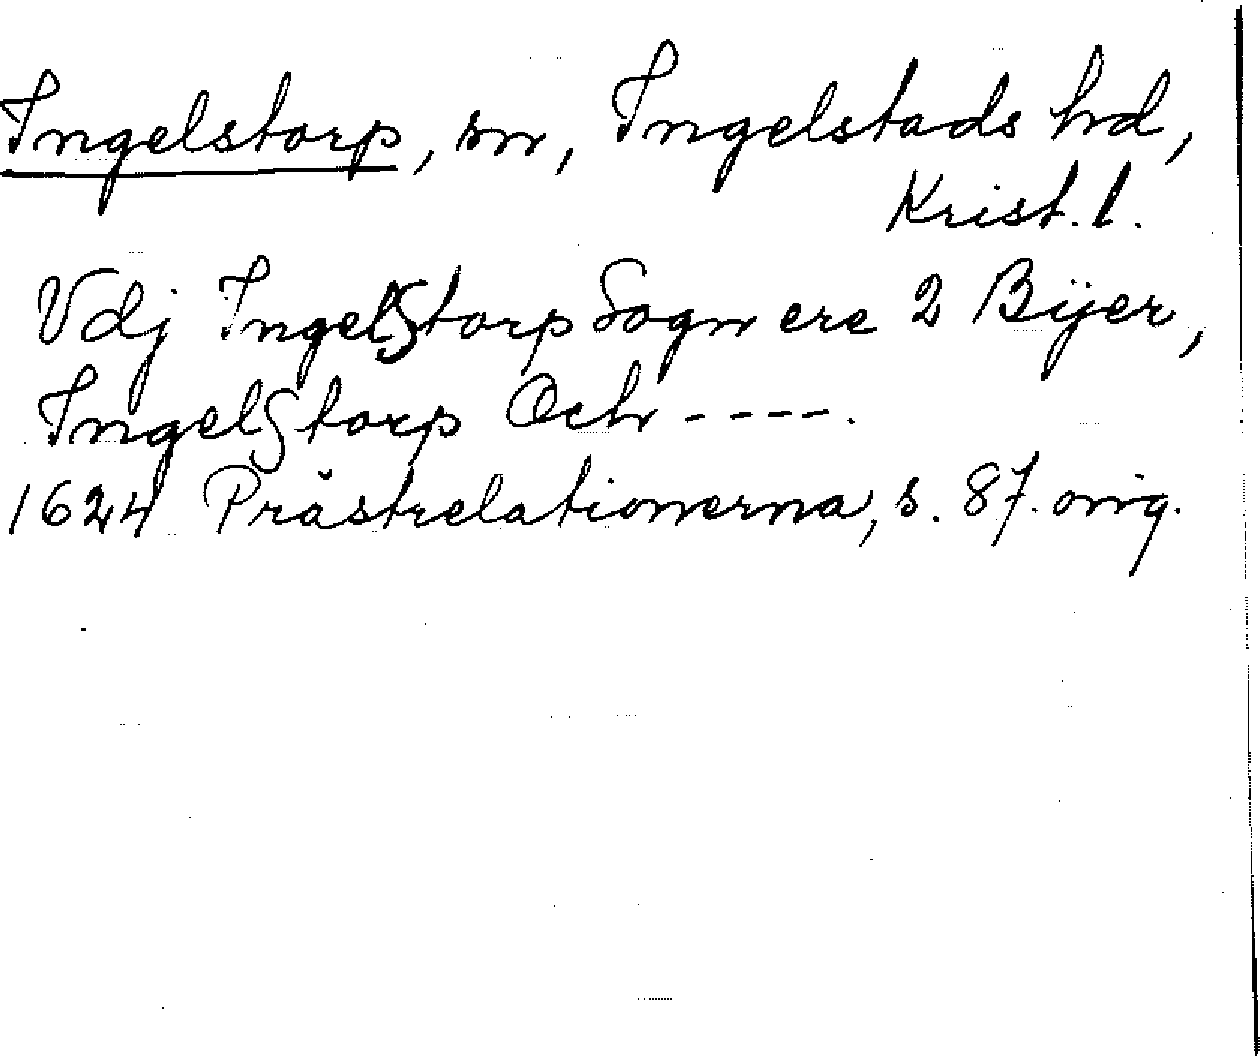 Ingelstorp, sn, Ingelstads hd,
Krist. l.
Vdj Ingelstorp Sogn ere 2 Bÿer,
Ingelstorp Och ----.
1624 Prästrelationerna, s. 87. orig.